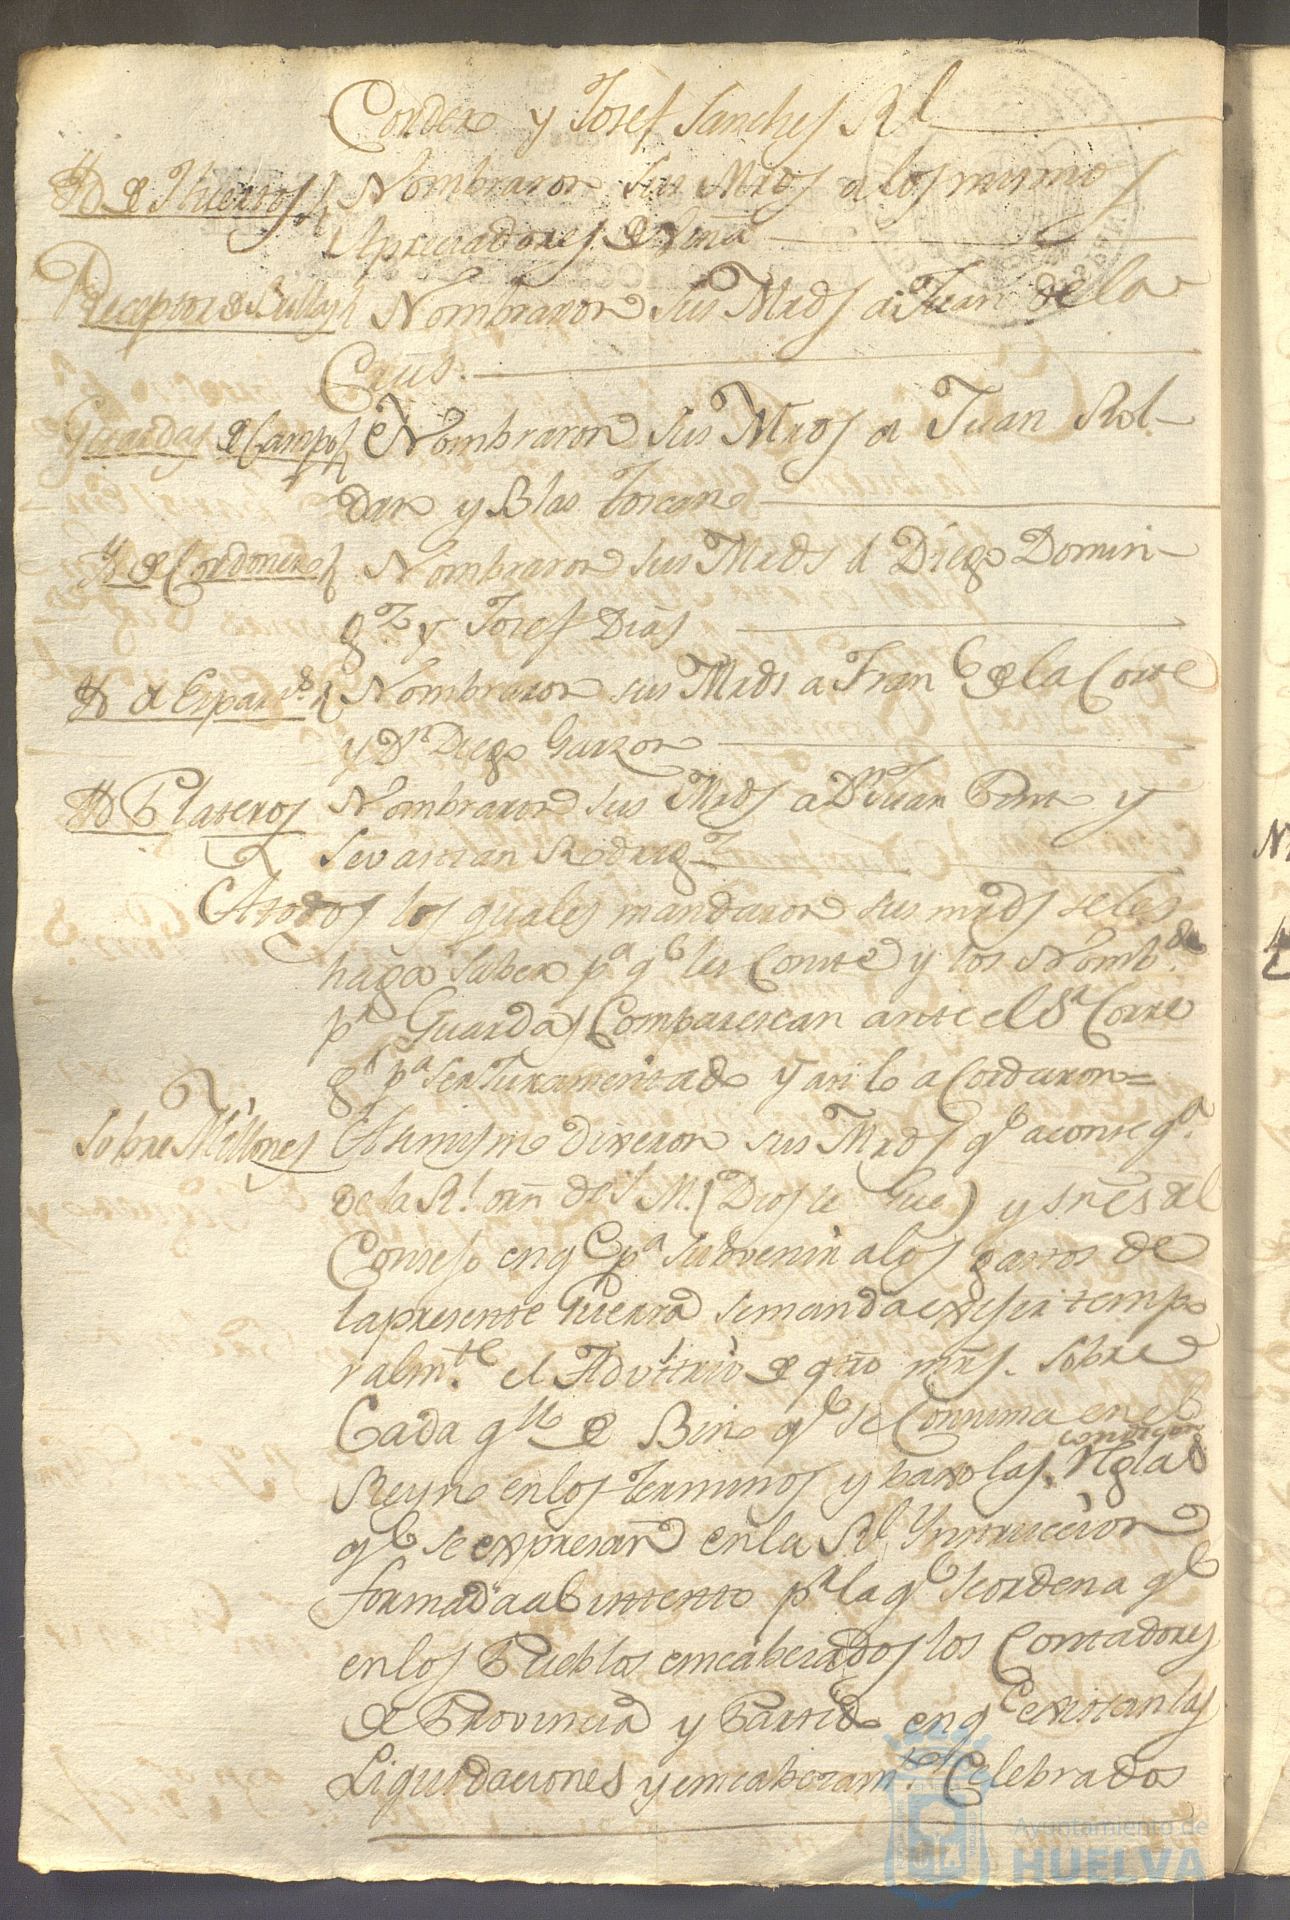 Cordero y Josef Sanches Rl
Yd de Huertos Nombraron sus Mrds a los mismos
Apreciadores de Viña
Receptor de Bullas Nombraron sus Mrds a Juan de la
Crus.
Guardas de Campo Nombraron sus Mrds a Juan Rol-
dan y Blas Toscano
Yd de Cordoneros Nombraron sus Mrds a Diego Domin-
gz y Josef Dias
Yd de Espartos Nombraron sus Mrds a Franco de la Corte
y Dn Diego Garzon
Yd Plateros Nombraron sus Mrds a Dn Juan Ponte y
Sevastian Rodrigz
A todos los quales mandaron sus mrds se les
haga saber pa qe les Conste y los Nombdos
pa Guardas Comparescan ante el Sr Corre
gr pa ser Juramentado y asi lo acordaron=
Sobre Millones Asimismo dixeron sus Mrds qe a conseqa
de la Rl. orn de S M. (Dios le Gue) y sres del
Consejo en qe pa subvenir a los gastos de
la presente Guerra se manda exsijir tempo
ralmte el Advitrio de qtro mrs. sobre
Cada qllo de Bino qe se Consuma en el
Reyno en los terminos y baxo las condiciones Reglas
qe se expresan en la Rl Ynstruccion
formada al intento pr la qe se ordena qe
en los Pueblos encabezados los Contadores
de Provincia y Partido en qe existan las
Liquidaciones y encabezamtos Celebrados
Ayuntamiento de
HUELVA